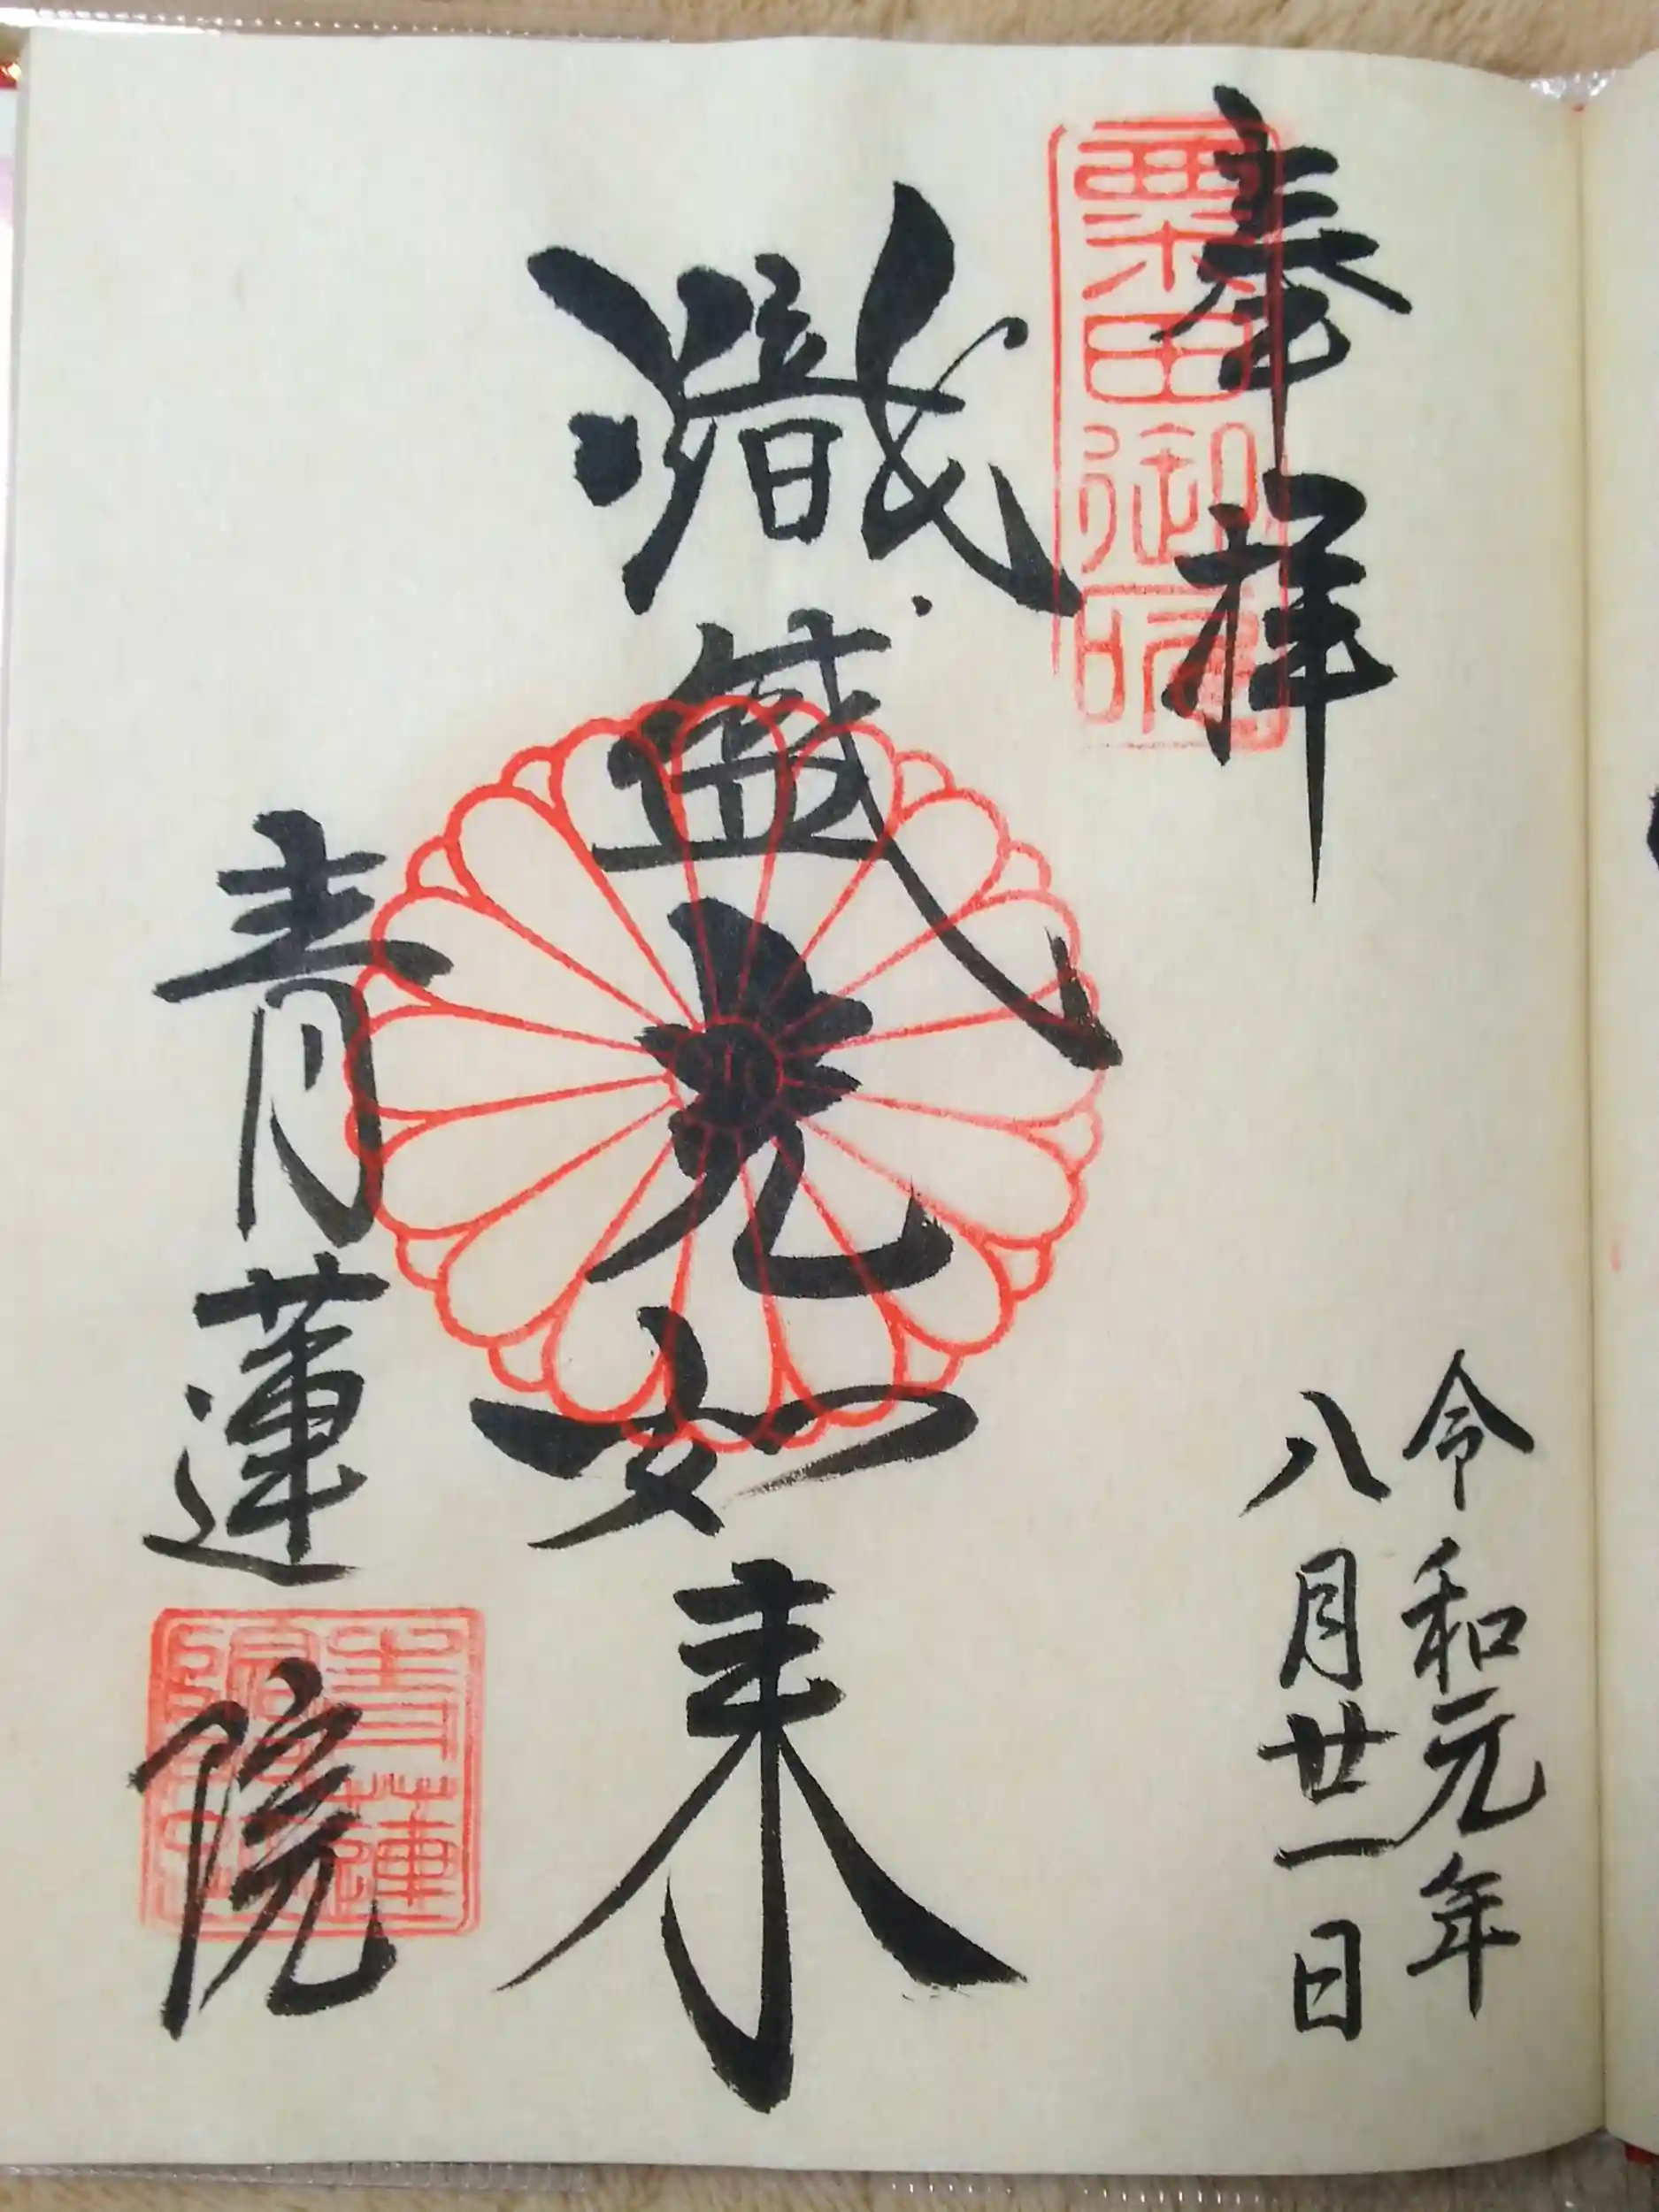 奉拝
粟田御所
令和元年
八月廿一日
熾盛光如来
青蓮院
青蓮
院印